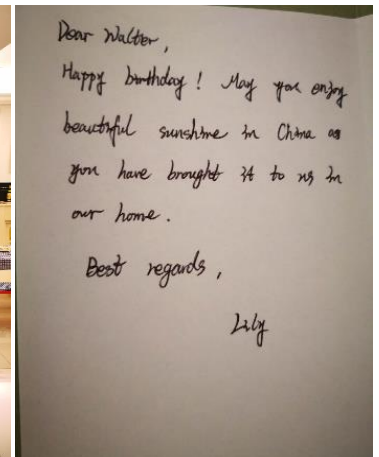 Dear Walter,
Happy birthday! May you enjoy
beautiful sunshine in China as
you have brought it to us in
our home.
Best regards,
Lily